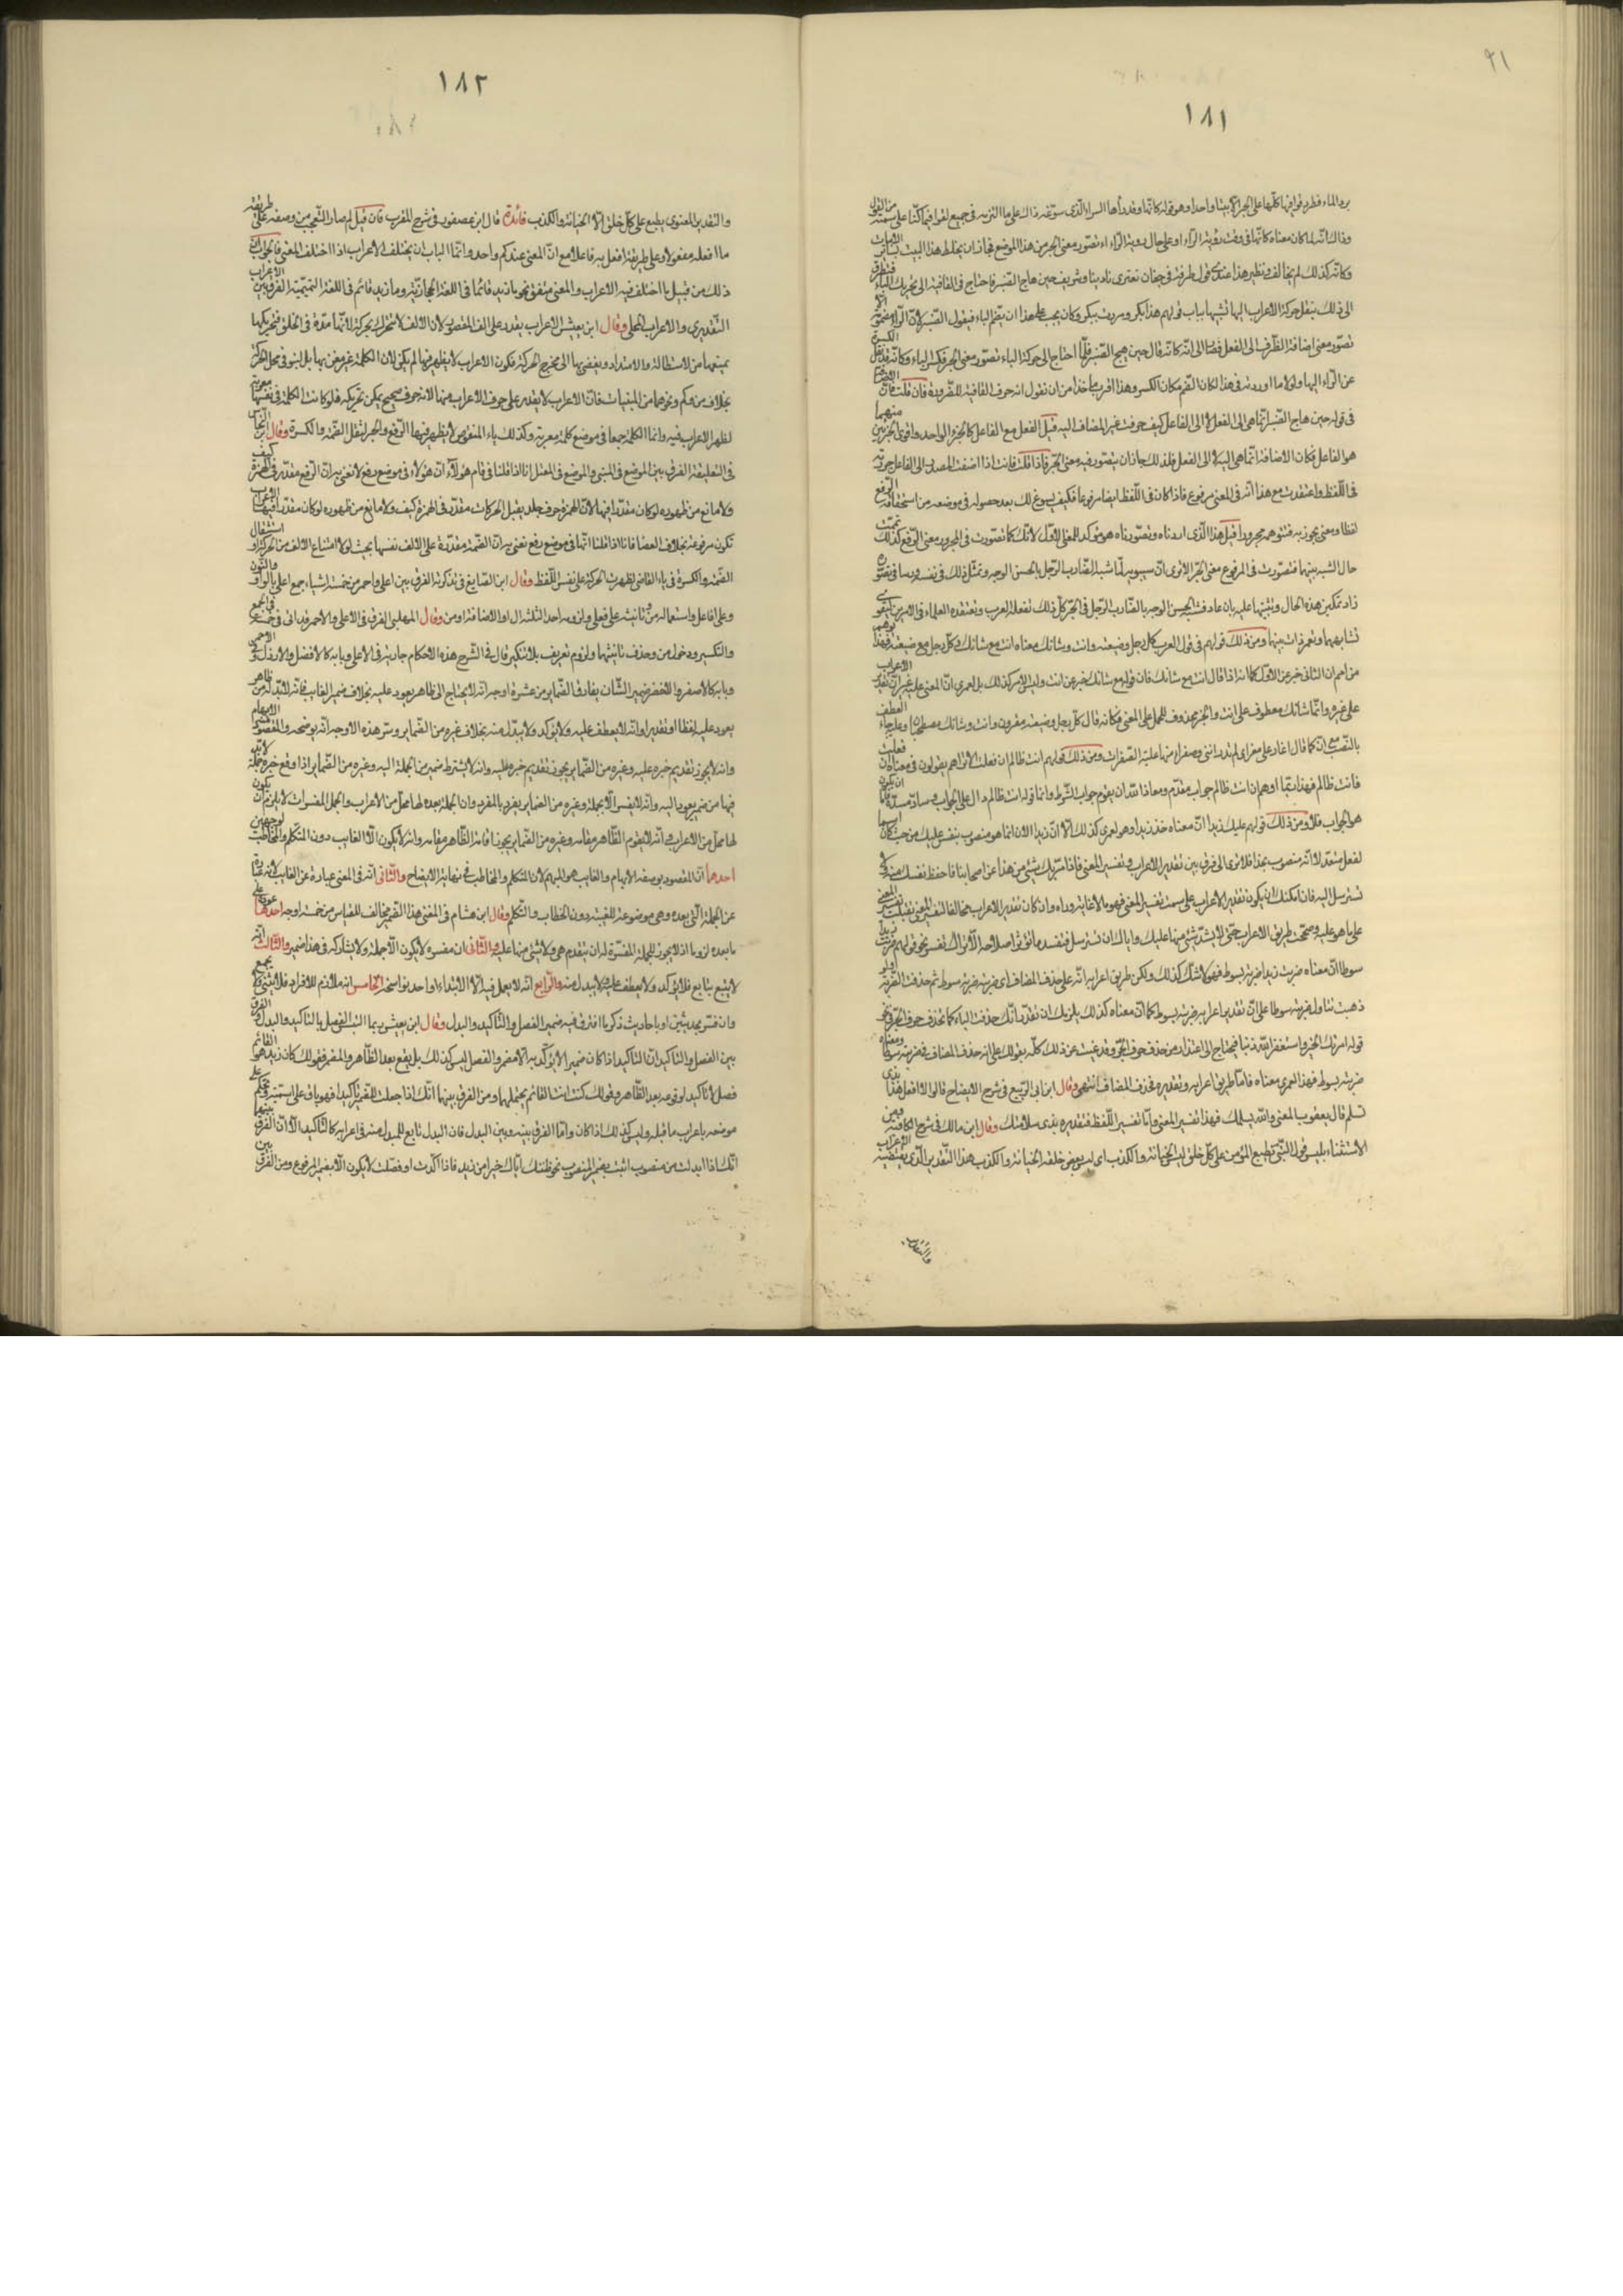 ٩١
١٨١
وكأنه كذلك لم يخالف ونظير هذا عندي قول طرفة في جفان تعتري نادينا وسديف حين هاج الصنبر فاحتاج في القافية الى تحريك الباء
الى ذلك بنقل حركة الاعراب اليها تشبيها بباب قولهم هذا بكر ومررت ببكر وكان يجب على هذا ان يضم الباء فيقول الصنبر لان الراء مضمومة الا انه
تصور معنى اضافة الظرف الى الفعل فصار الى انه كانه قال حين هيج الصنبر فلما احتاج الى حركة الباء تصور معنى الجر فكسر الباء وكأنه قد نقل الكسرة
عن الراء اليها ولولا ما اوردته في هذا لكان الضم مكان الكسر وهذا اقرب مأخذا من ان نقول انه حرف القافية للضرورة فان قلت فان
في قوله حين هاج الصنبر انما هي الى الفعل لا الى الفاعل فكيف حرفت غير المضاف اليه قيل الفعل مع الفاعل كالجزء الواحد واقوى الجزئين منهما
هو الفاعل فكان الاضافة انما هي اليه لا الى الفعل فلذلك جاز ان يتصور فيه معنى الجر فاذا قلت فانت اذا اضفت المصدر الى الفاعل جررته
في اللفظ واعتقدت مع هذا انه في المعنى مرفوع فاذا كان في اللفظ ايضا مرفوعا فكيف يسوغ لك بعد حصوله في موضعه من استحقاقه الرفع
لفظا ومعنى ان تجوز به فتتوهمه مجرورا قيل هذا الذي اردناه وتصورناه هو مؤكد للمعنى الاول لانك كما تصورت في المجرور معنى الرفع كذلك تممت
حال الشبه بينهما فتصورت في المرفوع معنى الجر الا ترى ان سيبويه لما شبه الضارب الرجل بالحسن الوجه وتمثل ذلك في نفسه ورسا في تصوره
زاد تمكين هذه الحال وتثبيتها عليه بان عاد فشبه الحسن الوجه بالضارب الرجل في الجر كل ذلك تفعله العرب وتعتقده العلماء في الامرين ليقوى
تشابههما وتعمر ذات بينهما ومن ذلك قولهم في قول العرب كل رجل وضيعته وانت وشانك معناه انت مع شانك وكل رجل مع ضيعته فهذا يوهم
من امم ان الثاني خبر عن الاول كما انه اذا قال انت مع شانك فان قوله مع شانك خبر عن انت وليس الامر كذلك بل لعمري ان المعنى عليه غير ان تقدير الاعراب
على غيره وانما شانك معطوف على انت والخبر محذوف للحمل على المعنى فكانه قال كل رجل وضيعته مقرونان وانت وشانك مصطحبان وعليه جاء العطف
بالنصب مع ان كما قال اغار على معزاي لم يدر انني وصفراء منها عبلة الصفرات ومن ذلك قولهم انت ظالم ان فعلت الا تراهم يقولون في معناه ان فعلت
فانت ظالم فهذا ربما اوهم ان انت ظالم جواب مقدم ومعاذ الله ان يقدم جواب الشرط وانما قوله انت ظالم دال على الجواب وساد مسده فاما ان يكون
هو الجواب فلا ومن ذلك قولهم عليك زيدا ان معناه خذ زيدا وهو لعمري كذلك الا ان زيدا الان انما هو منصوب بنفس عليك من حيث كان اسما
لفعل متعد لا انه منصوب بخذ افلا ترى الى فرق بين تقدير الاعراب وتفسير المعنى فاذا مر بك شيء من هذا عن اصحابنا فاحفظ نفسك منه ولا
تسترسل اليه فان امكنك ان يكون تقدير الاعراب على سمت تفسير المعنى فهو ما لا غاية وراءه وان كان تقدير الاعراب مخالفا لتفسير المعنى تقبلت تفسير المعنى
على ما هو عليه وصححت طريق الاعراب حتى لا يشذ شيء منها عليك واياك ان تسترسل فتفسد ما تؤثر اصلاحه الا تراك تفسر نحو قولهم ضربت زيدا
سوطا ان معناه ضربت زيدا ضربة بسوط فهو لا شك كذلك ولكن طريق اعرابه انه على حذف المضاف اي ضربته ضربة سوط ثم حذفت الضربة ولو
ذهبت تتأول ضربته سوطا على ان تقدير اعرابه ضربة بسوط كما ان معناه كذلك يلزمك ان تقدر انك حذفت الباء كما تحذف حرف الجر في نحو
قوله امرتك الخير واستغفر الله ذنبا فيحتاج الى اعتذار من حذف حرف الجر وقد غنيت عن ذلك كله بقولك على انه حذف المضاف في ضربته سوطا ومعناه
ضربة بسوط فهذا لعمري معناه فاما طريق اعرابه وتقديره فحذف المضاف انتهى وقال ابن ابي الربيع في شرح الايضاح قالوا لا افعل هذا بذي
تسلم قال يعقوب المعنى والله يسلمك فهذا تفسير المعنى واما تفسير اللفظ فتقديره بذي سلامتك وقال ابن مالك في شرح الكافية وبين
الاستثناء بليس قول النبي يطبع المؤمن على كل خلق ليس الخيانة والكذب اي ليس بعض خلقه الخيانة والكذب هذا التقدير الذي يقتضيه الاعراب
والتقدير
١٨٢
والتقدير المعنوي يطبع على كل خلق الا الخيانة والكذب فائدة قال ابن عصفور في شرح المقرب فان قيل لم صار التعجب من وصفه على طريقة
ما افعله مفعولا وعلى طريقة افعل به فاعلا مع ان المعنى عندكم واحد وانما الباب ان يختلف الاعراب اذا اختلف المعنى فالجواب ان
ذلك من قبيل ما اختلف فيه الاعراب والمعنى متفق نحو ما زيد قائما في اللغة الحجازية وما زيد قائم في اللغة التميمية الفرق بين الاعراب
التقديري والاعراب المحلي وقال ابن يعيش الاعراب يقدر على الف المقصور لان الالف لا تتحرك بحركة لانها مدة في الحلق فتحريكها
يمنعها من الاستطالة والامتداد ويفضي بها الى مخرج الحركة فكون الاعراب لا يظهر فيها لم يكن لان الكلمة غير معربة بل لنبو في محل الحركة
بخلاف من وكم ونحوهما من المبنيات فان الاعراب لا يقدر على حرف الاعراب منهما لانه حرف صحيح يمكن تحريكه فلو كانت الكلمة في نفسها معربة
لظهر الاعراب فيه وانما الكلمة جمعا في موضع كلمة معربة وكذلك ياء المنقوص لا يظهر فيها الرفع والجر لثقل الضمة والكسرة وقال ابن النحاس
في التعليقة الفرق بين الموضع في المبنى والموضع في المعتل انا اذا قلنا في قام هؤلاء ان هؤلاء في موضع رفع لا نعني به ان الرفع مقدر في الهمزة كيف
ولا مانع من ظهوره لو كان مقدرا فيها لان الهمزة حرف جلد يقبل الحركات
تكون مرفوعة بخلاف العصا فانا اذا قلنا انها في موضع رفع نعني به ان الضمة مقدرة على الالف نفسها بحيث لولا امتناع الالف من الحركة او استثقال
الضمة والكسرة في ياء القاضي لظهرت الحركة على نفس اللفظ وقال ابن الصايغ في تذكرته الفرق بين اعلى واحمر من خمسة اشياء جمع اعلى بالواو والنون
وعلى افاعل واستعماله بمن تأنيثه على فعلى ولزومه احد الثلثة ال او الاضافة او من وقال المهلبي الفرق في الاعلى والاحمر قد اتى في خمسة في الجمع
والتكسير ودخول من وحذف تأنيثها ولزوم تعريف بلا تنكير قال في الشرح هذه الاحكام جارية في الاعلى وبابه كالافضل والارذل
وبابه كالاصفر والاخضر ضمير الشأن يفارق الضماير من عشرة اوجه انه لا يحتاج الى ظاهر يعود عليه بخلاف ضمير الغايب فانه لا بد له من ظاهر
يعود عليه لفظا او تقديرا وانه لا يعطف عليه ولا يؤكد ولا يبدل منه بخلاف غيره من الضماير وسر هذه الاوجه انه يوضحه والمقصود منه الابهام
وانه لا يجوز تقديم خبره عليه وغيره من الضماير يجوز تقديم خبره عليه وانه لا يشترط ضمير من الجملة اليه وغيره من الضماير اذا وقع خبره جملة لا بد
فيها من ضمير يعود اليه وانه لا يفسر الا بجملة وغيره من الضماير يفسر بالمفرد وان الجملة بعده لها محل من الاعراب والجمل المفسرات لا يلزم ان يكون
لها محل من الاعراب وانه لا يقوم الظاهر مقامه وغيره من الضماير يجوز اقامة الظاهر مقامه وانه لا يكون الا الغايب دون المتكلم والمخاطب لوجهين
احدهما ان المقصود بوضعه الابهام والغايب هو المبهم لان المتكلم والمخاطب في نهاية الايضاح والثاني انه في المعنى عبارة عن الغايب لانه عبارة
عن الجملة التي بعده وهي موضوعة للغيبة دون الخطاب والتكلم وقال ابن هشام في المغني هذا الضمير مخالف للقياس من خمسة اوجه احدها عوده على
ما بعده لزوما اذ لا يجوز للجملة المفسرة له ان يتقدم هي ولا شيء منها عليه والثاني ان مفسره لا يكون الا جملة ولا يشاركه في هذا ضمير والثالث انه
لا يتبع بتابع فلا يؤكد ولا يعطف عليه ولا يبدل منه والرابع انه لا يعمل فيه الا الابتداء او احد نواسخه الخامس انه ملازم للافراد فلا يثنى ولا يجمع
وان فسر بحديثين او باحاديث ذكر ما افترق فيه ضمير الفصل والتأكيد والبدل وقال ابن يعيش ربما التبس الفصل بالتأكيد والبدل الفرق
بين الفصل والتأكيد ان التأكيد اذا كان ضميرا لا يؤكد به الا مضمر والفصل ليس كذلك بل يقع بعد الظاهر والمضمر فقولك كان زيد هو القائم
فصل لا تأكيد لوقوعه بعد الظاهر وقولك كنت انت القائم يحتملهما ومن الفرق بينهما انك اذا جعلت الضمير تأكيدا فهو باق على اسميته فيحكم على
موضعه باعراب ما قبله وليس كذلك اذا كان واما الفرق بينه وبين البدل فان البدل تابع للمبدل منه في اعرابه كالتأكيد الا ان الفرق بينهما
انك اذا ابدلت من منصوب اتيت بضمير المنصوب نحو ظننتك اياك خيرا من زيد فاذا اكدت او فصلت لا يكون الا بضمير المرفوع ومن الفرق بين